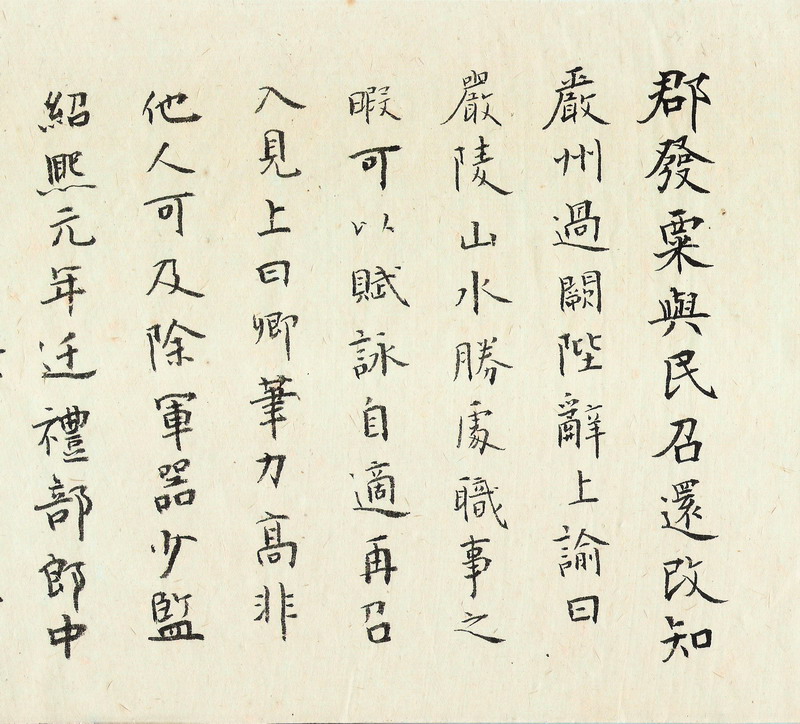 郡發粟與民召還改知
嚴州過闕陛辭上諭曰
嚴陵山水勝處職事之
暇可以賦詠自適再召
入見上曰卿筆力高非
他人可及除軍器少監
紹熙元年迁禮部郎中